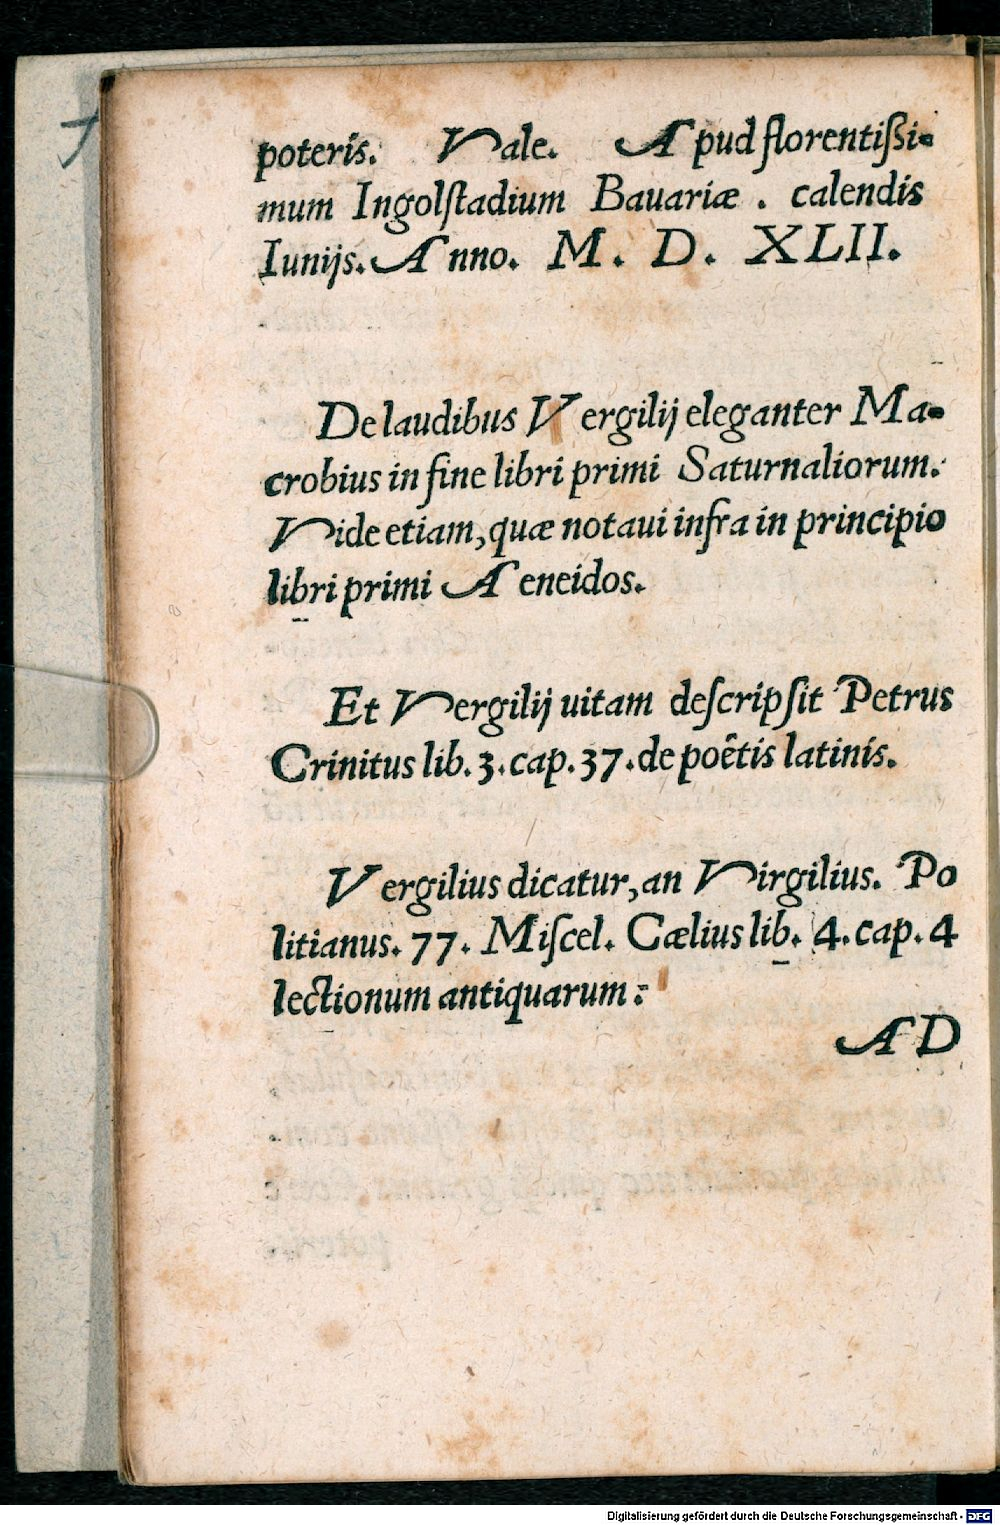 poteris. Vale. Apud florentißi-
mum Ingolſtadium Bauariæ. calendis
Iunijs. Anno. M. D. XLII.
De laudibus Vergilij eleganter Ma-
crobius in fine libri primi Saturnaliorum.
Vide etiam, quæ notaui infra in principio
libri primi Aeneidos.
Et Vergilij uitam deſcripſit Petrus
Crinitus lib. 3. cap. 37. de poêtis latinis.
Vergilius dicatur, an Virgilius. Po
litianus. 77. Miſcel. Cælius lib. 4. cap. 4
lectionum antiquarum:
AD
Digitalisierung gefördert durch die Deutsche Forschungsgemeinschaft - DFG